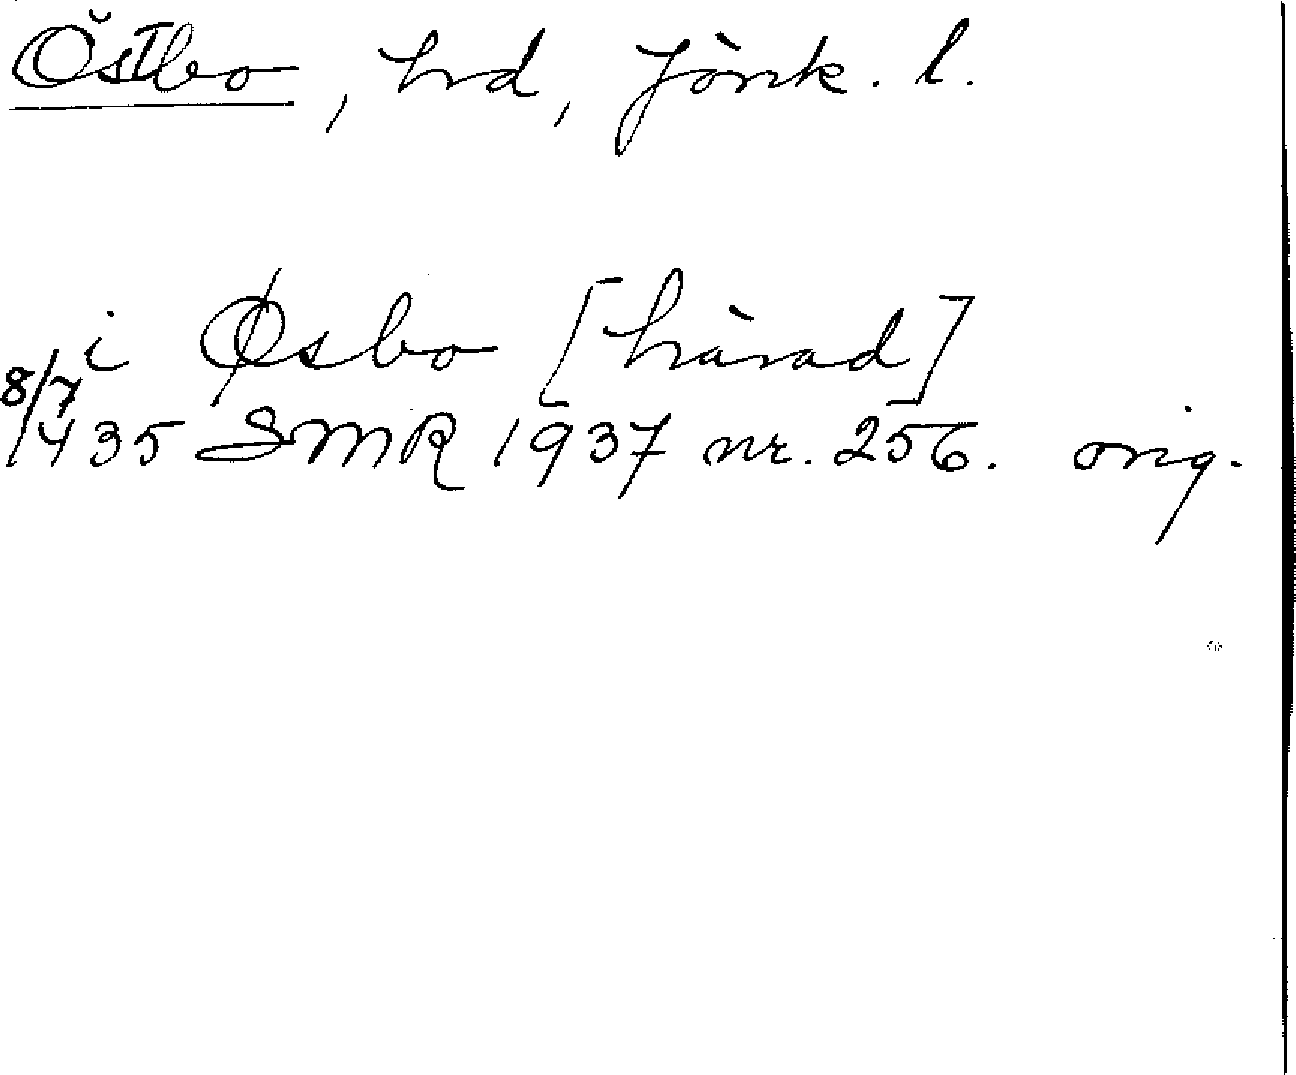 Östbo, hrd, Jönk. l.
i Øsbo [härad]
8/7
1435 SMR 1937 nr. 256. orig.